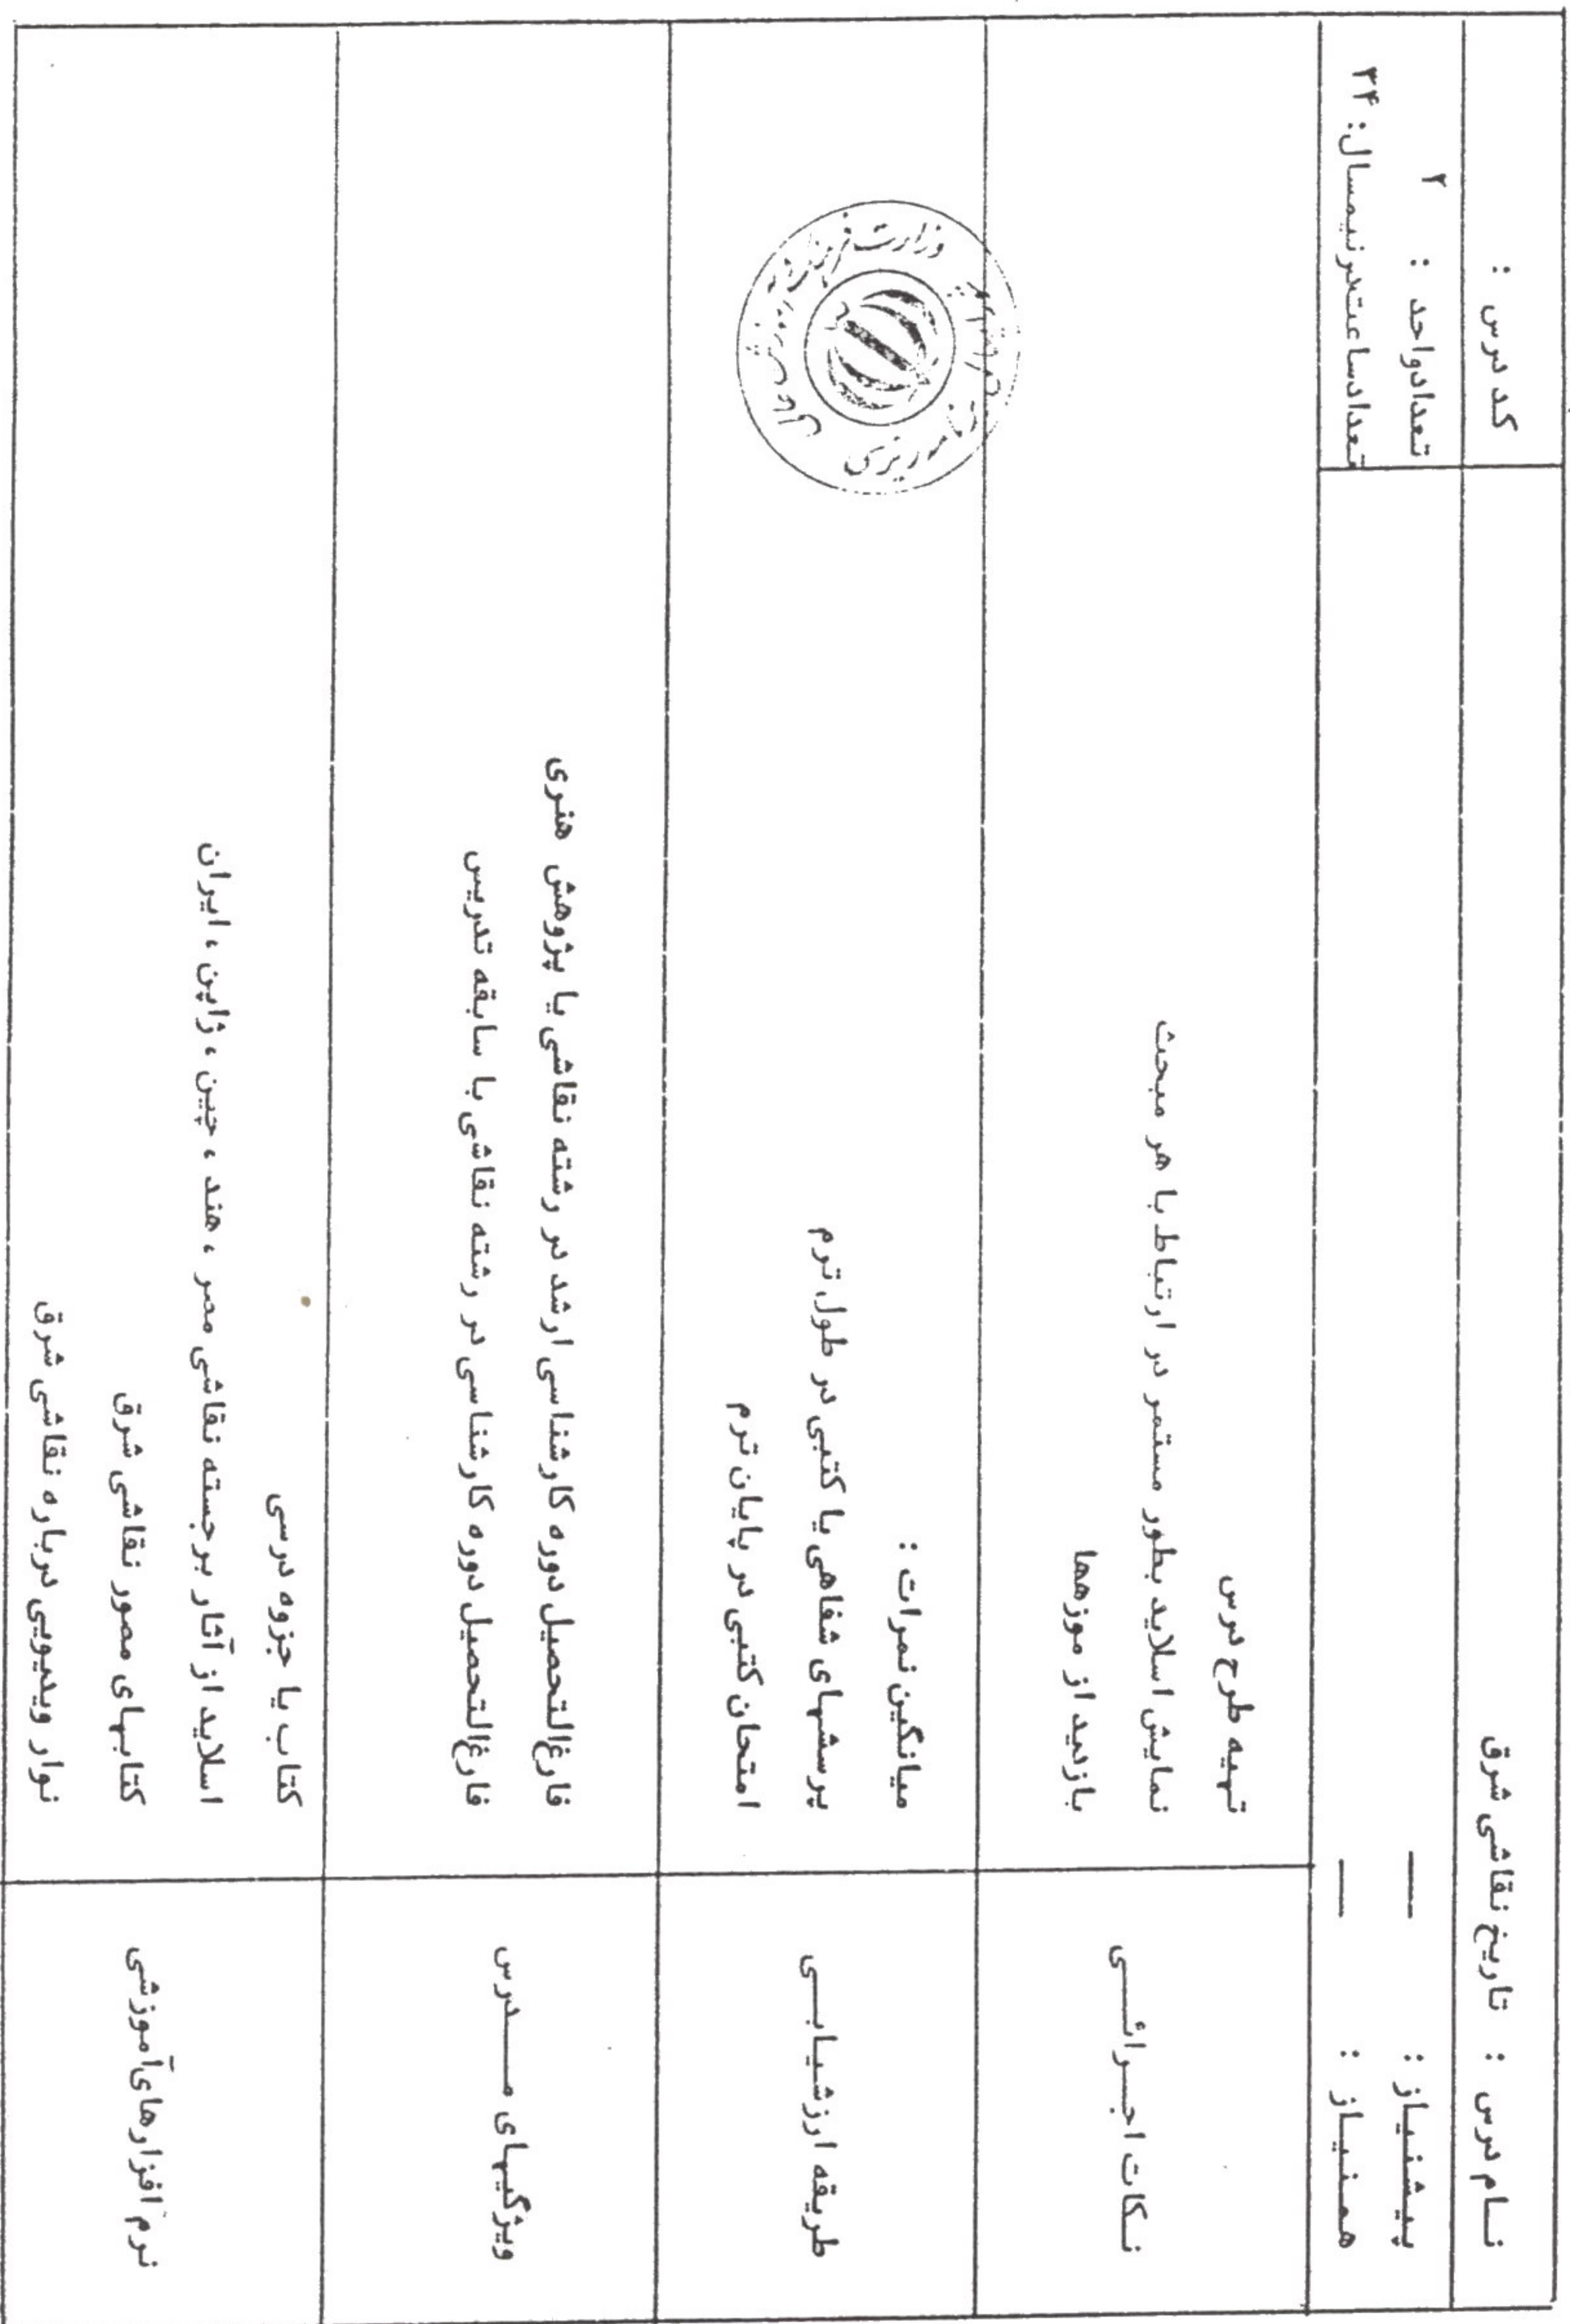 نـام درس : تاریخ نقاشی شرق
کد درس :
پیشنیاز : —
تعداد واحد : ۲
همنیاز : —
تعداد ساعت در نیمسال : ۳۴
نکات اجـرائـی
تهیه طرح درس
نمایش اسلاید بطور مستمر در ارتباط با هر مبحث
بازدید از موزهها
طریقه ارزشیابـی
میانگین نمرات :
پرسشهای شفاهی یا کتبی در طول ترم
امتحان کتبی در پایان ترم
ویژگیهای مـدرس
فارغ‌التحصیل دوره کارشناسی ارشد در رشته نقاشی یا پژوهش هنری
فارغ‌التحصیل دوره کارشناسی در رشته نقاشی با سابقه تدریس
نرم افزارهای آموزشی
کتاب یا جزوه درسی
اسلاید از آثار برجسته نقاشی مصر ، هند ، چین ، ژاپن ، ایران
کتابهای مصور نقاشی شرق
نوار ویدیویی درباره نقاشی شرق
وزارت فرهنگ و آموزش